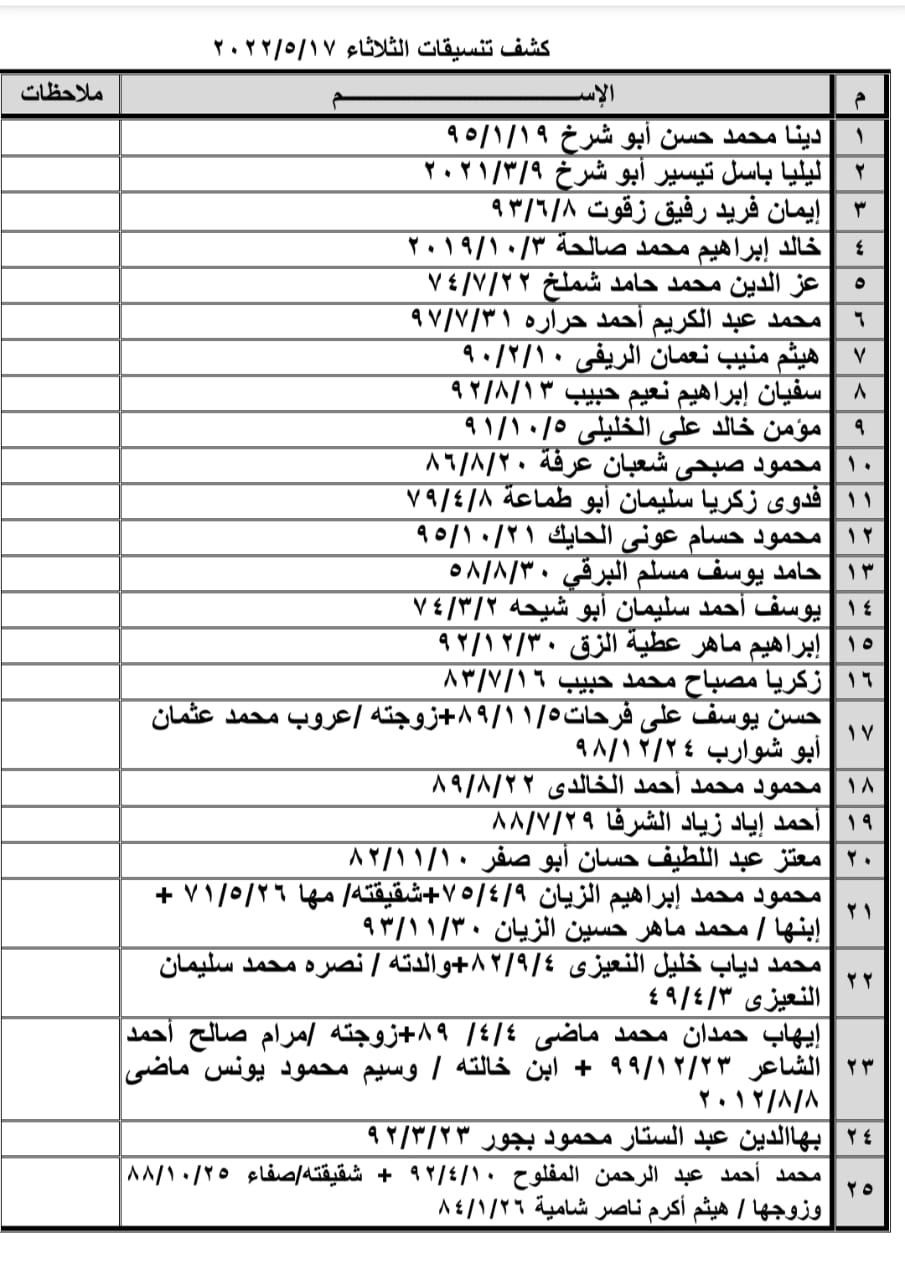 كشف تنسيقات الثلاثاء ٢٠٢٢/٥/١٧
م الإســـــــــم ملاحظات
١ دينا محمد حسن أبو شرخ ٩٥/١/١٩
٢ ليليا باسل تيسير أبو شرخ ٢٠٢١/٣/٩
٣ إيمان فريد رفيق زقوت ٩٣/٦/٨
٤ خالد إبراهيم محمد صالحة ٢٠١٩/١٠/٣
٥ عز الدين محمد حامد شملخ ٧٤/٧/٢٢
٦ محمد عبد الكريم أحمد حراره ٩٧/٧/٣١
٧ هيثم منيب نعمان الريفى ٩٠/٢/١٠
٨ سفيان إبراهيم نعيم حبيب ٩٢/٨/١٣
٩ مؤمن خالد على الخليلى ٩١/١٠/٥
١٠ محمود صبحى شعبان عرفة ٨٦/٨/٢٠
١١ فدوى زكريا سليمان أبو طماعة ٧٩/٤/٨
١٢ محمود حسام عونى الحايك ٩٥/١٠/٢١
١٣ حامد يوسف مسلم البرقي ٥٨/٨/٣٠
١٤ يوسف أحمد سليمان أبو شيحه ٧٤/٣/٢
١٥ إبراهيم ماهر عطية الزق ٩٢/١٢/٣٠
١٦ زكريا مصباح محمد حبيب ٨٣/٧/١٦
١٧ حسن يوسف على فرحات٨٩/١١/٥+زوجته /عروب محمد عثمان
أبو شوارب ٩٨/١٢/٢٤
١٨ محمود محمد أحمد الخالدى ٨٩/٨/٢٢
١٩ أحمد إياد زياد الشرفا ٨٨/٧/٢٩
٢٠ معتز عبد اللطيف حسان أبو صفر ٨٢/١١/١٠
٢١ محمود محمد إبراهيم الزيان ٧٥/٤/٩+شقيقته/ مها ٧١/٥/٢٦ +
إبنها / محمد ماهر حسين الزيان ٩٣/١١/٣٠
٢٢ محمد دياب خليل النعيزى ٨٢/٩/٤+والدته / نصره محمد سليمان
النعيزى ٤٩/٤/٣
٢٣ إيهاب حمدان محمد ماضى ٨٩ /٤/٤+زوجته /مرام صالح أحمد
الشاعر ٩٩/١٢/٢٣ + ابن خالته / وسيم محمود يونس ماضى
٢٠١٢/٨/٨
٢٤ بهاالدين عبد الستار محمود بجور ٩٢/٣/٢٣
٢٥ محمد أحمد عبد الرحمن المفلوح ٩٢/٤/١٠ + شقيقته/صفاء ٨٨/١٠/٢٥
وزوجها / هيثم أكرم ناصر شامية ٨٤/١/٢٦